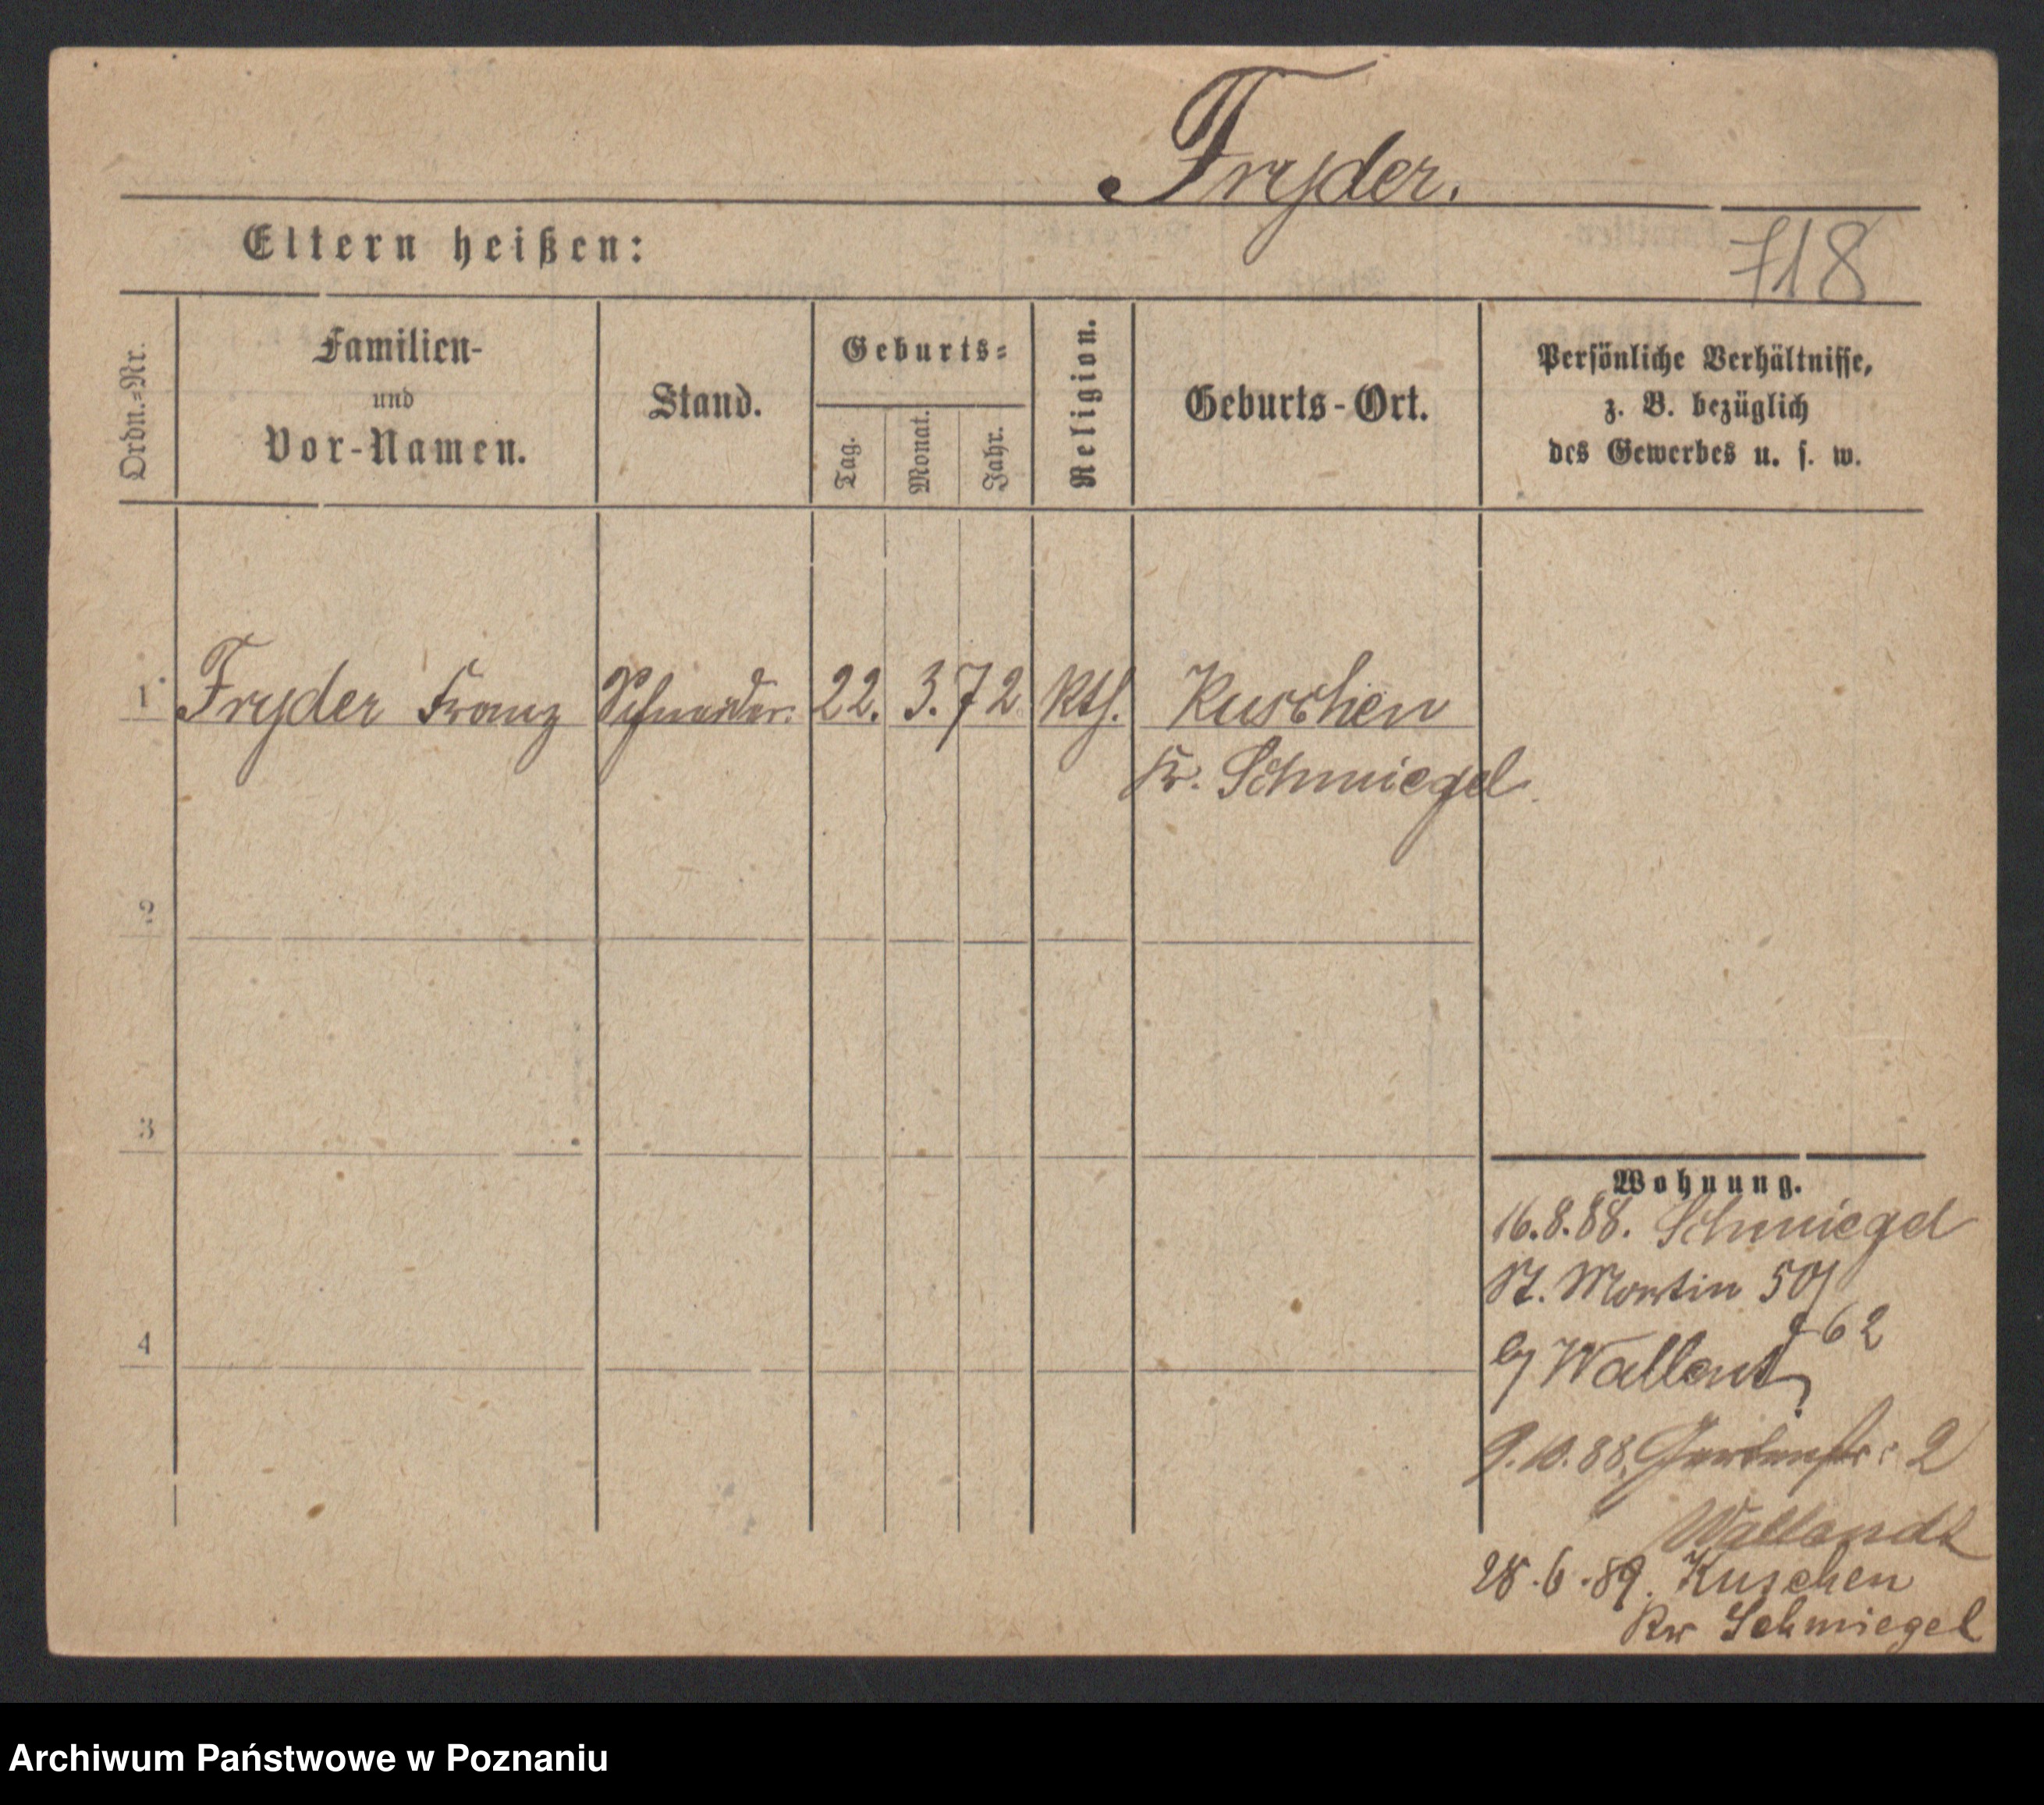 Fryder.
Eltern heißen:
718
Ordn.=Nr.
Familien-
und
Vor-Namen.
Stand.
Geburts=
Tag.
Monat.
Jahr.
Religion.
Geburts-Ort.
Persönliche Verhältnisse,
z. B. bezüglich
des Gewerbes u. s. w.
1 Fryder Franz Schneider. 22. 3. 72 Kth. Kuschen
Kr. Schmiegel.
2
3
4
Wohnung.
16.8.88. Schmiegel
St. Martin 50/
62
b/ Wallant
9.10.88. Gartenstr. 2
Wallandt
28.6.89. Kuschen
Kr Schmiegel
Archiwum Państwowe w Poznaniu